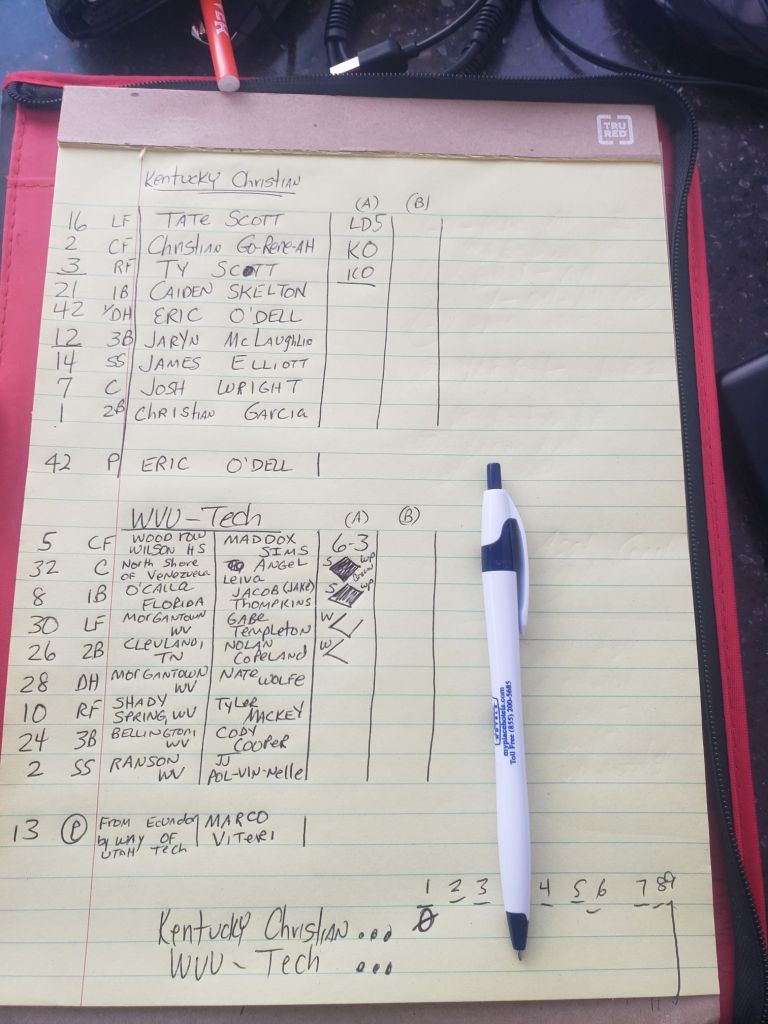 TER
TRU
RED
Kentucky Christian
(A) (B)
16 LF TATE SCOTT LD5
2 CF Christian Go-Rene-AH KO
3 RF TY SCOTT KO
21 1B CAIDEN SKELTON
42 /DH ERIC O'DELL
12 3B JARYN McLaughlin
14 SS JAMES ELLIOTT
7 C JOSH WRIGHT
1 2B Christian Garcia
42 P ERIC O'DELL
WVU-Tech (A) (B)
5 CF WOODROW WILSON HS MADDOX SIMS 6-3
32 C North Shore OF Venezuela ANGEL Leiva S WP
8 1B O'CALLA FLORIDA JACOB (JAKE) THOMPKINS S WP
30 LF MORGANTOWN WV GABE Templeton W
26 2B CLEVLAND, TN NOLAN COPELAND W
28 DH MORGANTOWN WV NATE WOLFE
10 RF SHADY SPRING, WV Tyler MACKEY
24 3B BELLINGTON, WV CODY COOPER
2 SS RANSON WV JJ POL-VIN-Nelle
13 P From Ecuador by WAY OF UTAH Tech MARCO VITERI
1 2 3 4 5 6 7 8 9
Kentucky Christian... 0
WVU-Tech ...
myplacehotels.com
Toll Free (855) 200-5685